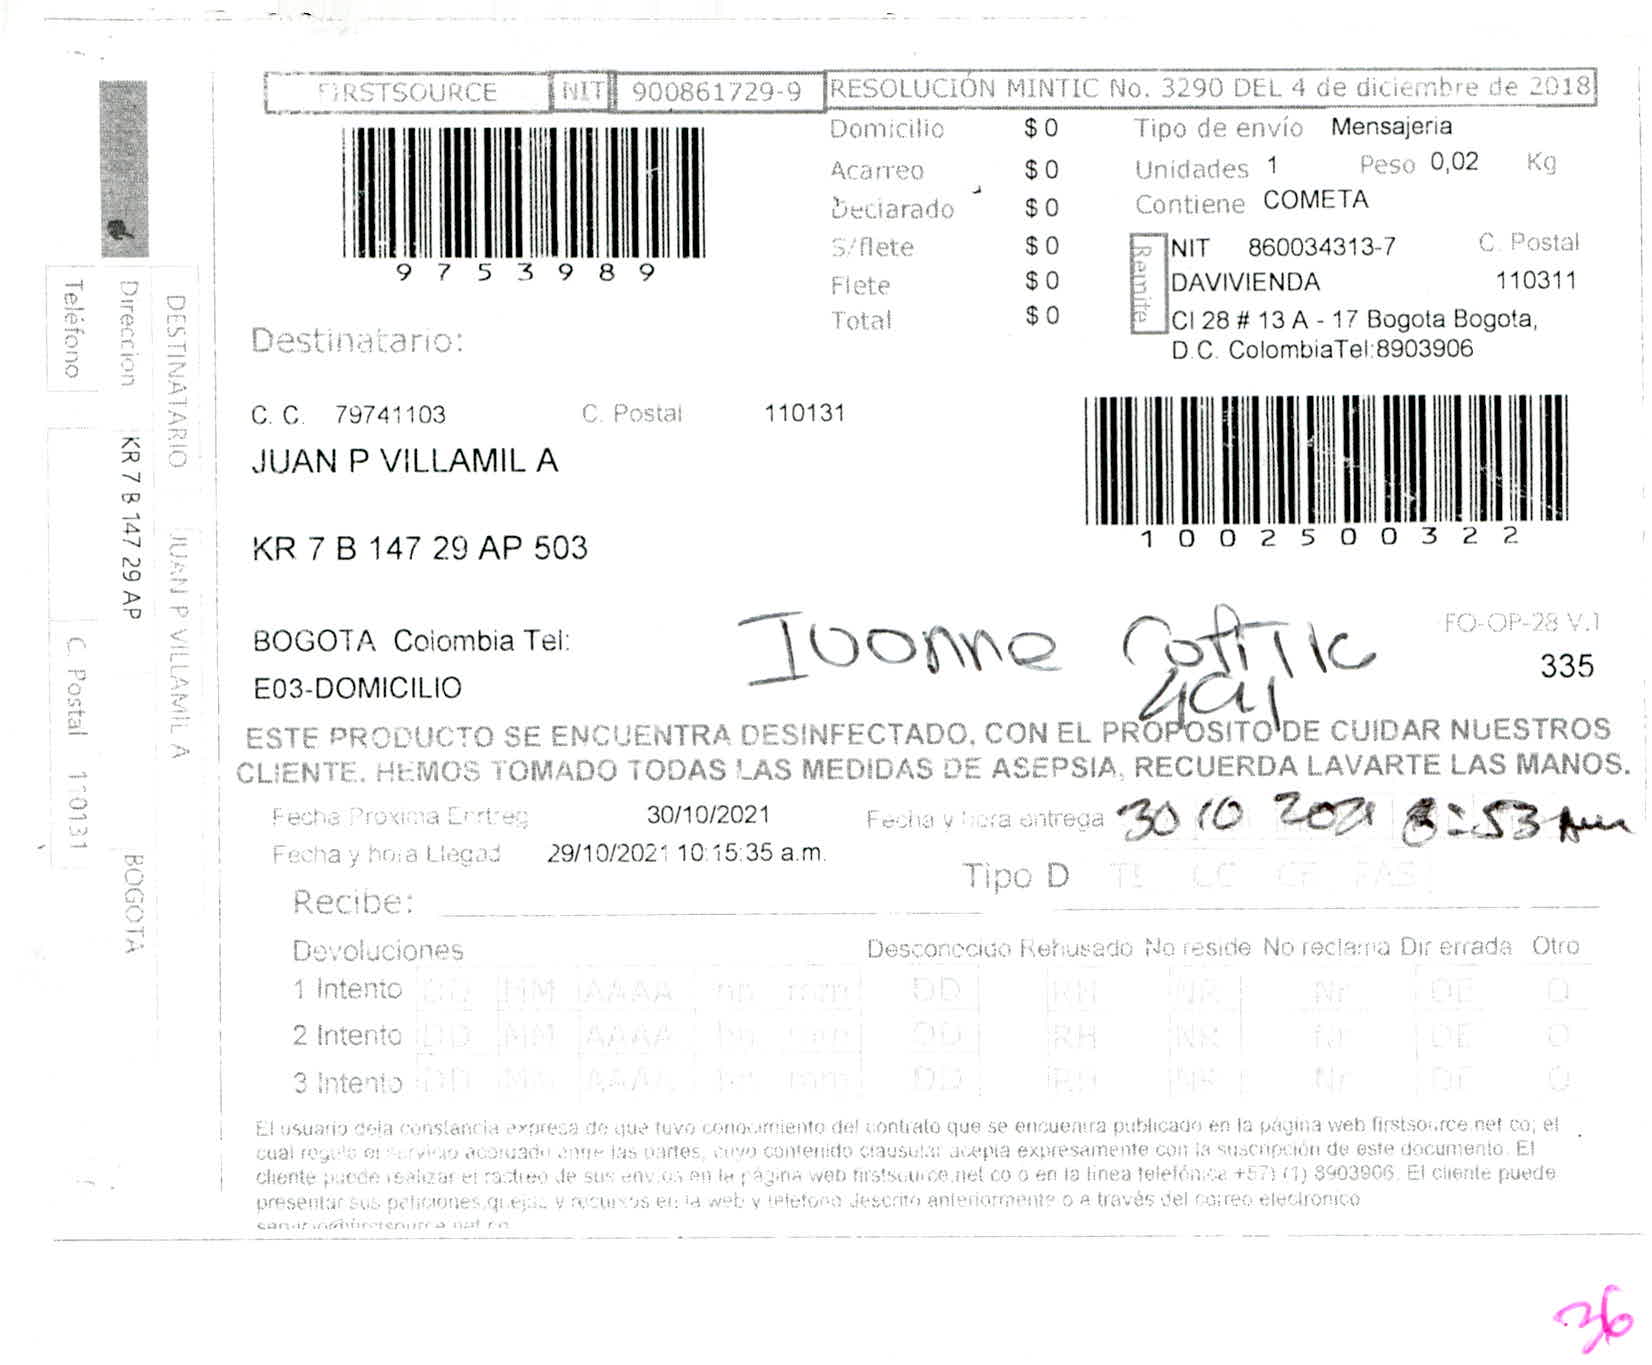 FIRSTSOURCE NIT 900861729-9 RESOLUCIÓN MINTIC No. 3290 DEL 4 de diciembre de 2018
9 7 5 3 9 8 9
Domicilio $ 0
Acarreo $ 0
Declarado $ 0
S/flete $ 0
Flete $ 0
Total $ 0
Tipo de envío Mensajeria
Unidades 1 Peso 0,02 Kg
Contiene COMETA
Remite
NIT 860034313-7 C. Postal
DAVIVIENDA 110311
Cl 28 # 13 A - 17 Bogota Bogota,
D.C. ColombiaTel:8903906
Destinatario:
C. C. 79741103 C. Postal 110131
JUAN P VILLAMIL A
KR 7 B 147 29 AP 503
1 0 0 2 5 0 0 3 2 2
BOGOTA Colombia Tel:
E03-DOMICILIO
Ivonne
FO-OP-28 V.1
335
ESTE PRODUCTO SE ENCUENTRA DESINFECTADO, CON EL PROPOSITO DE CUIDAR NUESTROS
CLIENTE. HEMOS TOMADO TODAS LAS MEDIDAS DE ASEPSIA, RECUERDA LAVARTE LAS MANOS.
Fecha Proxima Entreg 30/10/2021
Fecha y hora entrega 30 10 2021 8:53 Am
Fecha y hora Llegad 29/10/2021 10:15:35 a.m.
Tipo D TE CC CE PAS
Recibe:
Devoluciones Desconocido Rehusado No reside No reclama Dir errada Otro
1 Intento DD MM AAAA hh mm DD RH NR Nr DE O
2 Intento DD MM AAAA hh mm DD RH NR Nr DE O
3 Intento DD MM AAAA hh mm DD RH NR Nr DE O
El usuario deja constancia expresa de que tuvo conocimiento del contrato que se encuentra publicado en la página web firstsource.net co; el
cual regula el servicio acordado entre las partes, cuyo contenido clausular acepta expresamente con la suscripción de este documento. El
cliente puede realizar el rastreo de sus envios en la página web firstsource.net co o en la linea telefónica +57) (1) 8903906. El cliente puede
presentar sus peticiones, quejas y recursos en la web y telefono descrito anteriormente o a través del correo electronico
servicio@firstsource.net.co
DESTINATARIO JUAN P VILLAMIL A
Direccion KR 7 B 147 29 AP BOGOTA
Teléfono C. Postal 110131
36